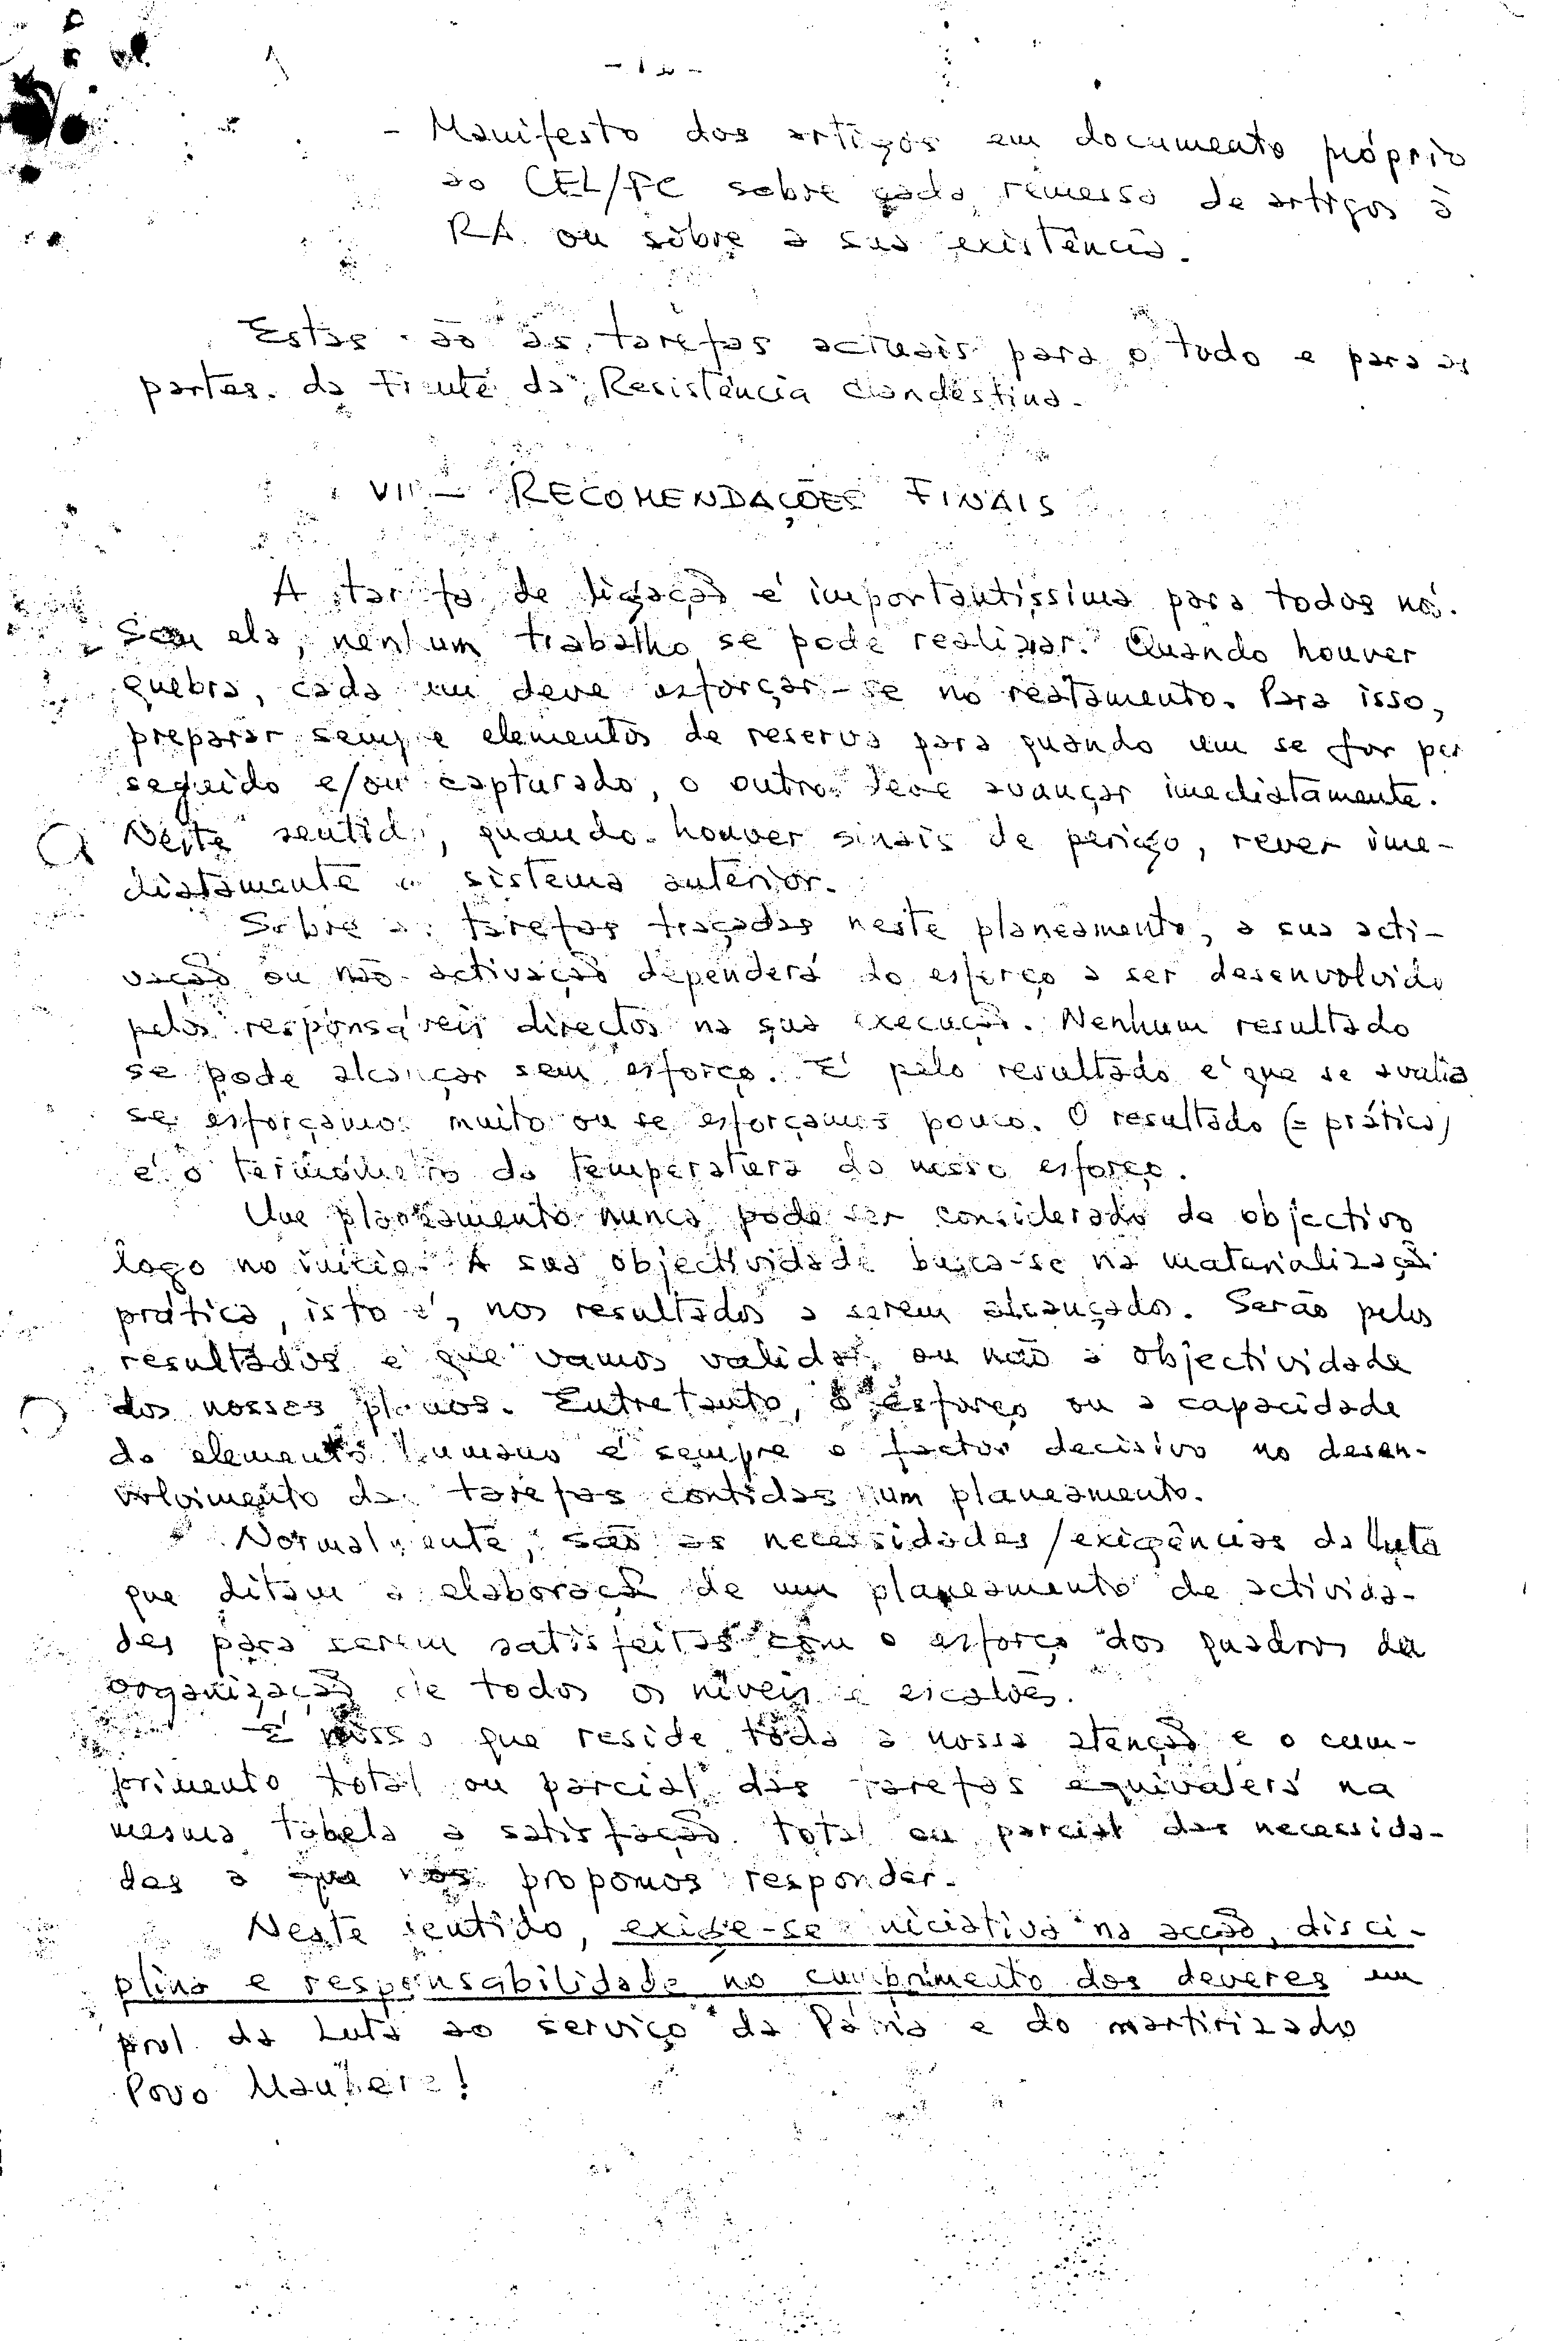 - Manifesto dos artigos em documento próprio
ao CEL/FC sobre cada remessa de artigos à
RA ou sobre a sua existência.
Estas são as tarefas actuais para o todo e para as
partes da Frente da Resistência Clandestina.
VII - RECOMENDAÇÕES FINAIS
A tarefa de ligação é importantíssima para todos nós.
Sem ela, nenhum trabalho se pode realizar. Quando houver
quebra, cada um deve esforçar-se no reatamento. Para isso,
preparar sempre elementos de reserva para quando um se for per
seguido e/ou capturado, o outro deve avançar imediatamente.
Neste sentido, quando houver sinais de perigo, rever ime-
diatamente o sistema anterior.
Sobre as tarefas traçadas neste planeamento, a sua acti-
vação ou não activação dependerá do esforço a ser desenvolvido
pelos responsáveis directos na sua execução. Nenhum resultado
se pode alcançar sem esforço. É pelo resultado é que se avalia
se esforçamos muito ou se esforçamos pouco. O resultado (= prática)
é o termómetro da temperatura do nosso esforço.
Um planeamento nunca pode ser considerado de objectivo
logo no início. A sua objectividade busca-se na materialização
prática, isto é, nos resultados a serem alcançados. Serão pelos
resultados é que vamos validar ou não a objectividade
dos nossos planos. Entretanto, o esforço ou a capacidade
do elemento humano é sempre o factor decisivo no desen-
volvimento das tarefas contidas num planeamento.
Normalmente, são as necessidades/exigências da luta
que ditam a elaboração de um planeamento de activida-
des para serem satisfeitas com o esforço dos quadros da
organização de todos os níveis e escalões.
É nisso que reside toda a nossa atenção e o cum-
primento total ou parcial das tarefas equivalerá na
mesma tabela a satisfação total ou parcial das necessida-
des a que nos propomos responder.
Neste sentido, exige-se iniciativa na acção, disci-
plina e responsabilidade no cumprimento dos deveres em
prol da Luta ao serviço da Pátria e do martirizado
Povo Maubere!